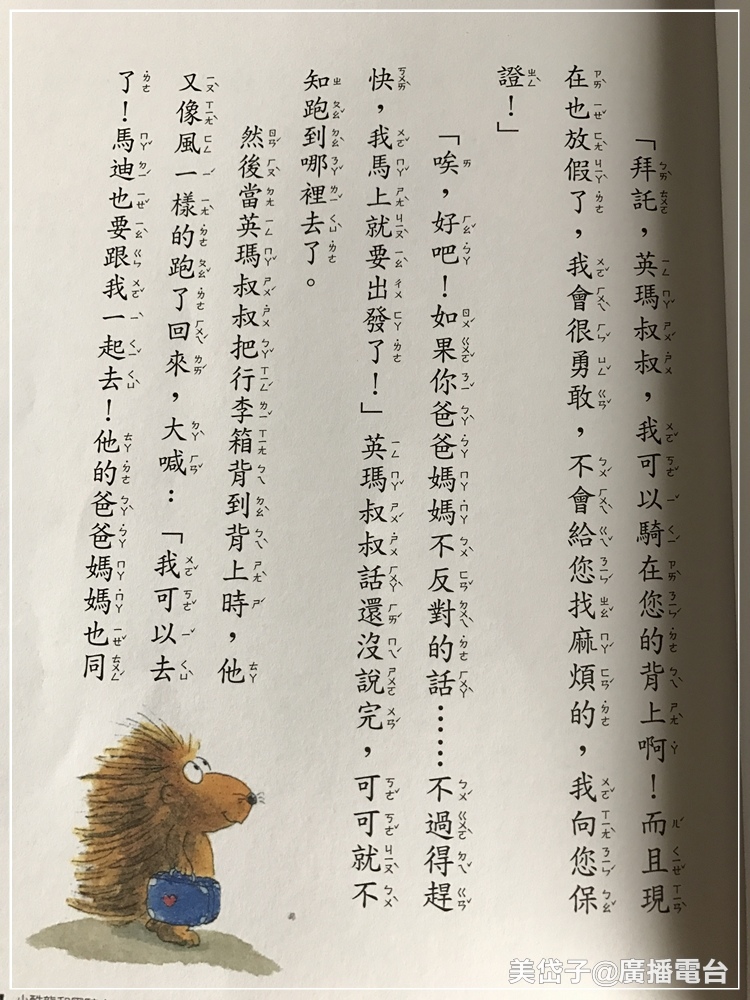 「拜託，英瑪叔叔，我可以騎在您的背上啊！而且現
在也放假了，我會很勇敢，不會給您找麻煩的，我向您保
證！」
「唉，好吧！如果你爸爸媽媽不反對的話……不過得趕
快，我馬上就要出發了！」英瑪叔叔話還沒說完，可可就不
知跑到哪裡去了。
然後當英瑪叔叔把行李箱背到背上時，他
又像風一樣的跑了回來，大喊：「我可以去
了！馬迪也要跟我一起去！他的爸爸媽媽也同
美岱子@廣播電台